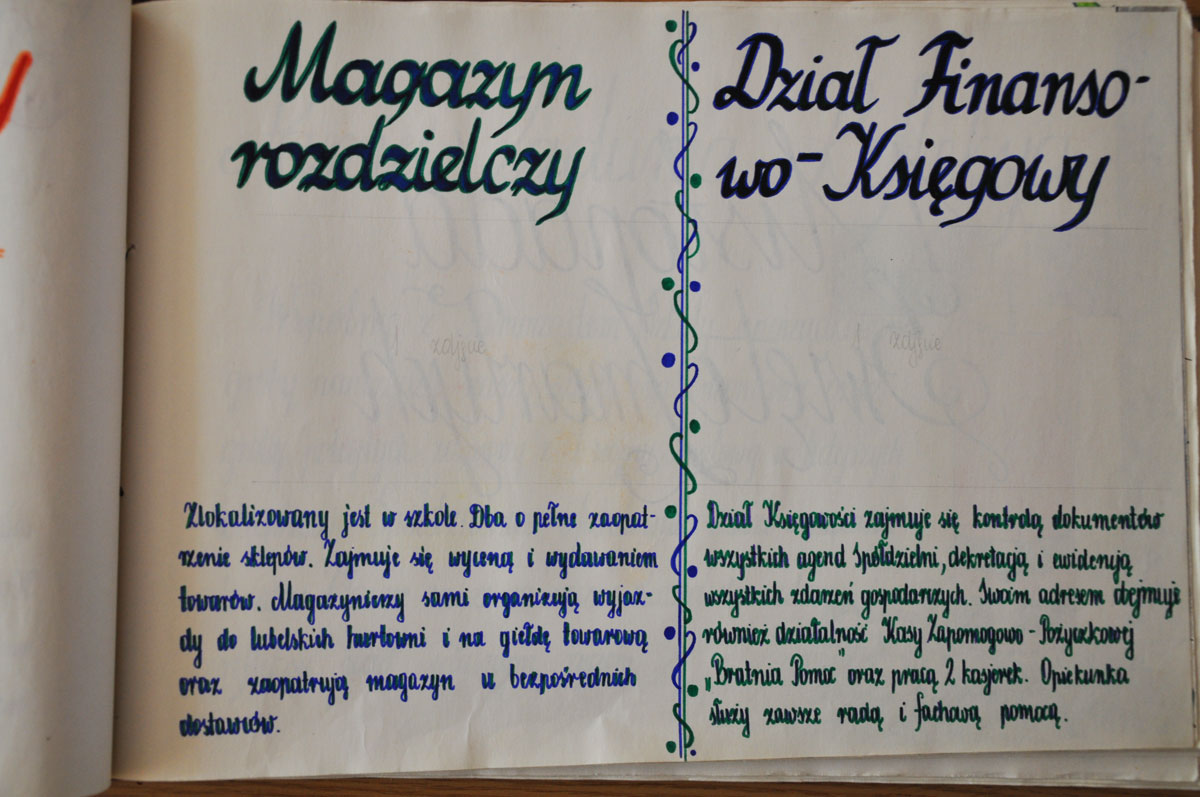 Magazyn
rozdzielczy
1 zdjęcie
Zlokalizowany jest w szkole. Dba o pełne zaopat-
rzenie sklepów. Zajmuje się wyceną i wydawaniem
towarów. Magazynierzy sami organizują wyjaz-
dy do lubelskich hurtowni i na giełdę towarową
oraz zaopatrują magazyn u bezpośrednich
dostawców.
Dział Finanso-
wo-Księgowy
1 zdjęcie
Dział Księgowości zajmuje się kontrolą dokumentów
wszystkich agend Spółdzielni, dekretacją i ewidencją
wszystkich zdarzeń gospodarczych. Swoim adresem obejmuje
również działalność Kasy Zapomogowo-Pożyczkowej
„Bratnia Pomoc" oraz pracą 2 kasjerek. Opiekunka
służy zawsze radą i fachową pomocą.